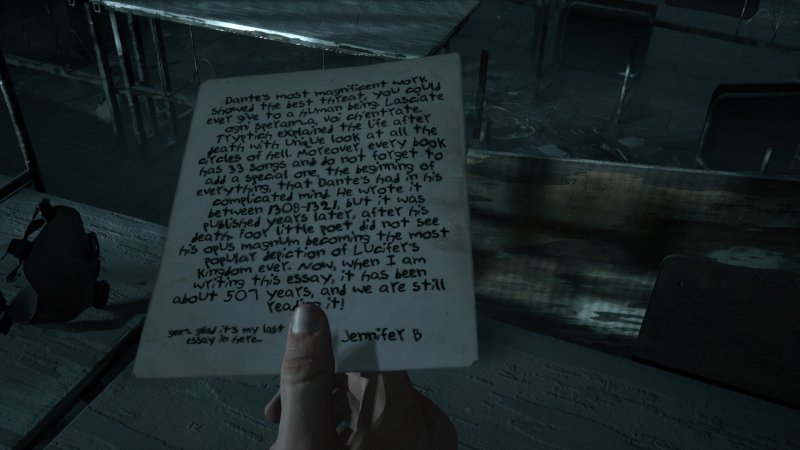 Dante's most magnificent work
showed the best threat, you could
ever give to a human being. Lasciate
ogni speranua, voi ch'entrate.
Tryptich explained the life after
death with unique look at all the
circles of hell. Moreover, every book
has 33 songs and do not forget to
add a special one, the beginning of
everything, that Dante's had in his
complicated mind. He wrote it
between 1308-1321, but it was
published years later, after his
death. Poor little poet did not see
his opus magnum becoming the most
popular depiction of Lucifer's
kingdom ever. Now, when I am
writing this essay, it has been
about 507 years, and we are still
it!
glad it's my last
essay in here...
Jennifer B